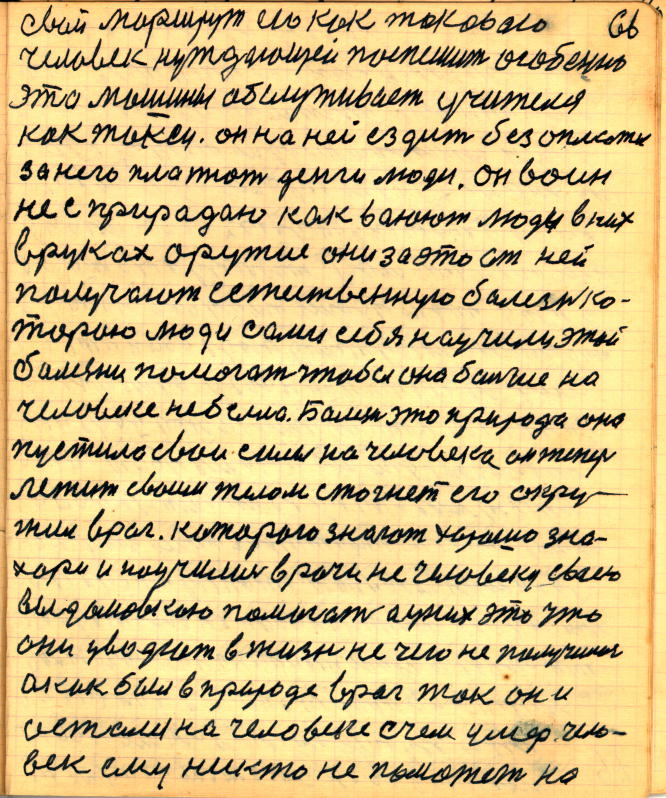 66
свой маршрут его как таковаго
человек нуждающей поспешит особенно
это машины обслуживает учителя
как такси. он на ней ездит без оплаты
за него платют денги люди. он воин
не с прирадаю как ваюют люди в них
в руках оружие они за это от ней
получают естественную балезн ко-
торою люди сами себя научили этой
балезни помогат чтобы она болше на
человеке небыла. Балезн это природа она
пустила свои силы на человека он тепер
лежит своим телом стогнет его окру-
жил враг. которого знают хорошо зна-
хори и научилис врачи не человеку свою
выдомовкою помогат а у них это что
они уводят в жизн не чего не получилос
а как был в природе враг так он и
остался на человеке с чем умер. чело-
век ему никто не поможет на